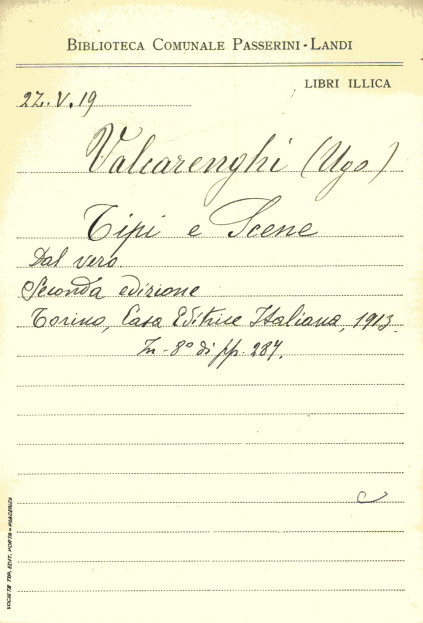 BIBLIOTECA COMUNALE PASSERINI-LANDI
LIBRI ILLICA
2Z.V.19
Valcarenghi (Ugo)
Tipi e Scene
Dal vero
Seconda edizione
Torino, Casa Editrice Italiana, 1913.
In-8° di pp. 287.
SOCIETÀ TIP. EDIT. PORTA-PIACENZA